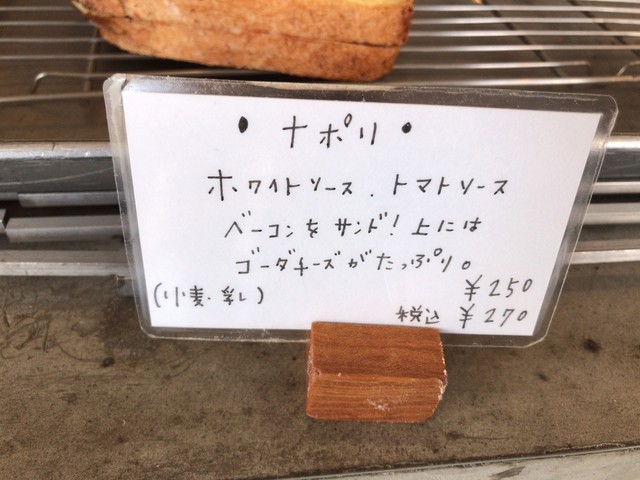 ・ナポリ・
ホワイトソース.トマトソース
ベーコンをサンド!上には
ゴーダチーズがたっぷり。
(小麦・乳)
¥250
税込 ¥270